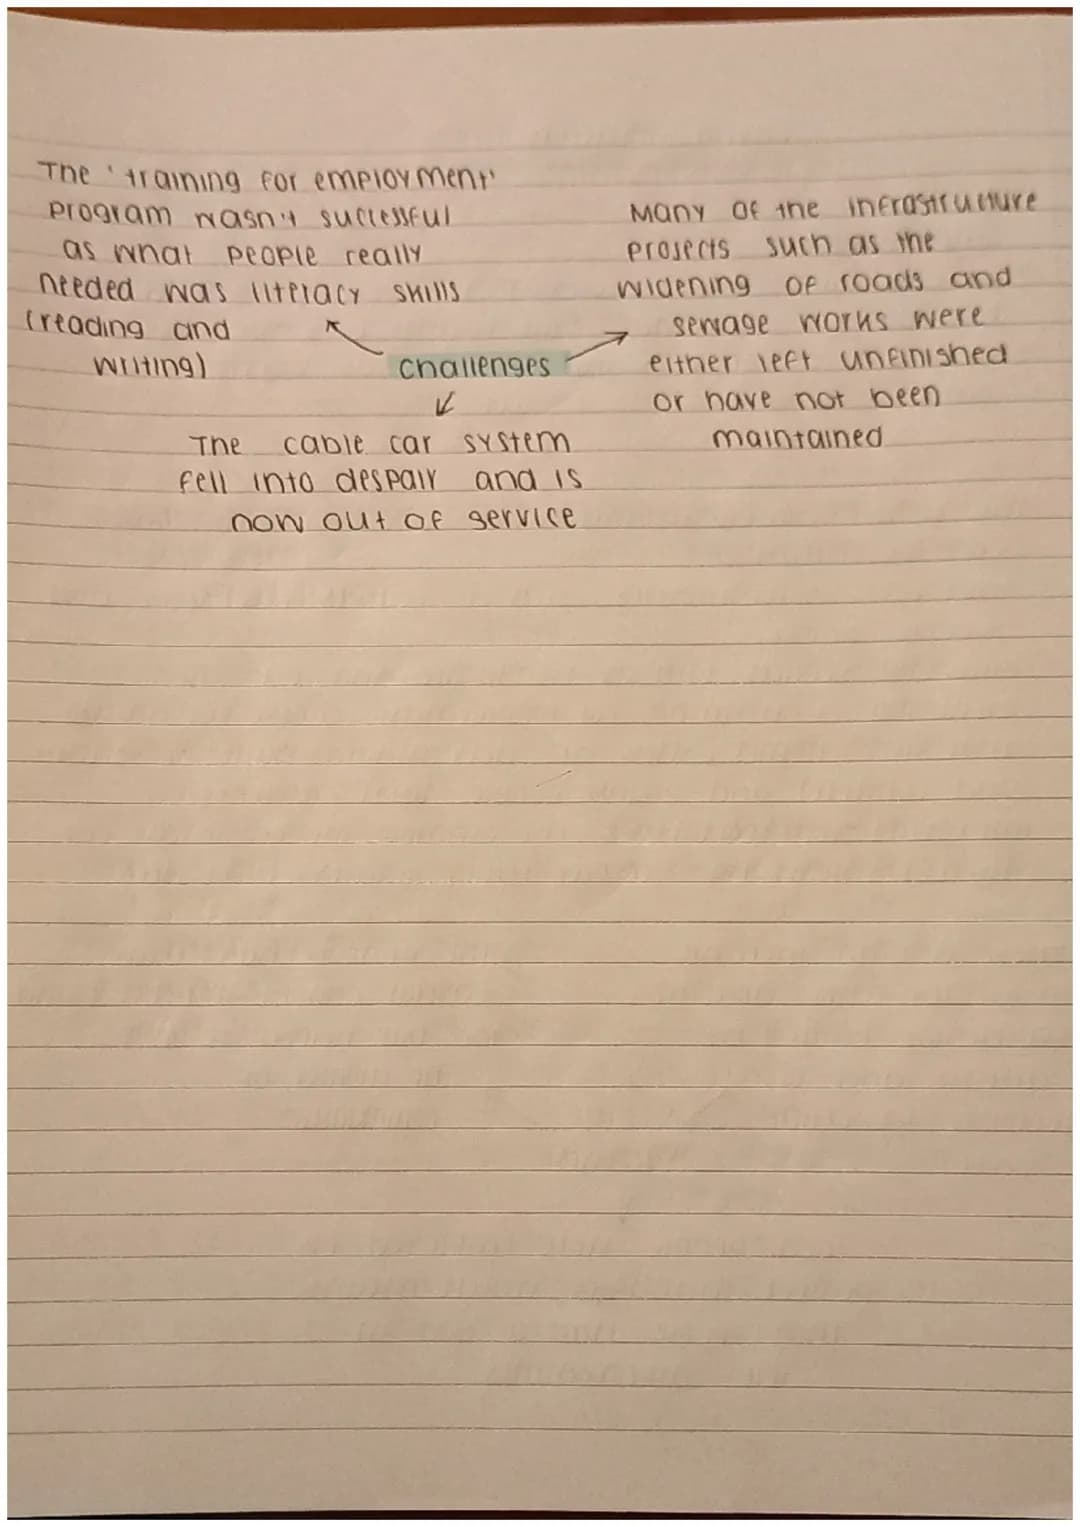 The 'training for employment'
program wasn't successful
as what people really
needed was literacy skills
(reading and
writing)
Many of the infrastructure
projects such as the
widening of roads and
sewage works were
either left unfinished
or have not been
maintained
challenges
The cable car system
fell into despair and is
now out of service